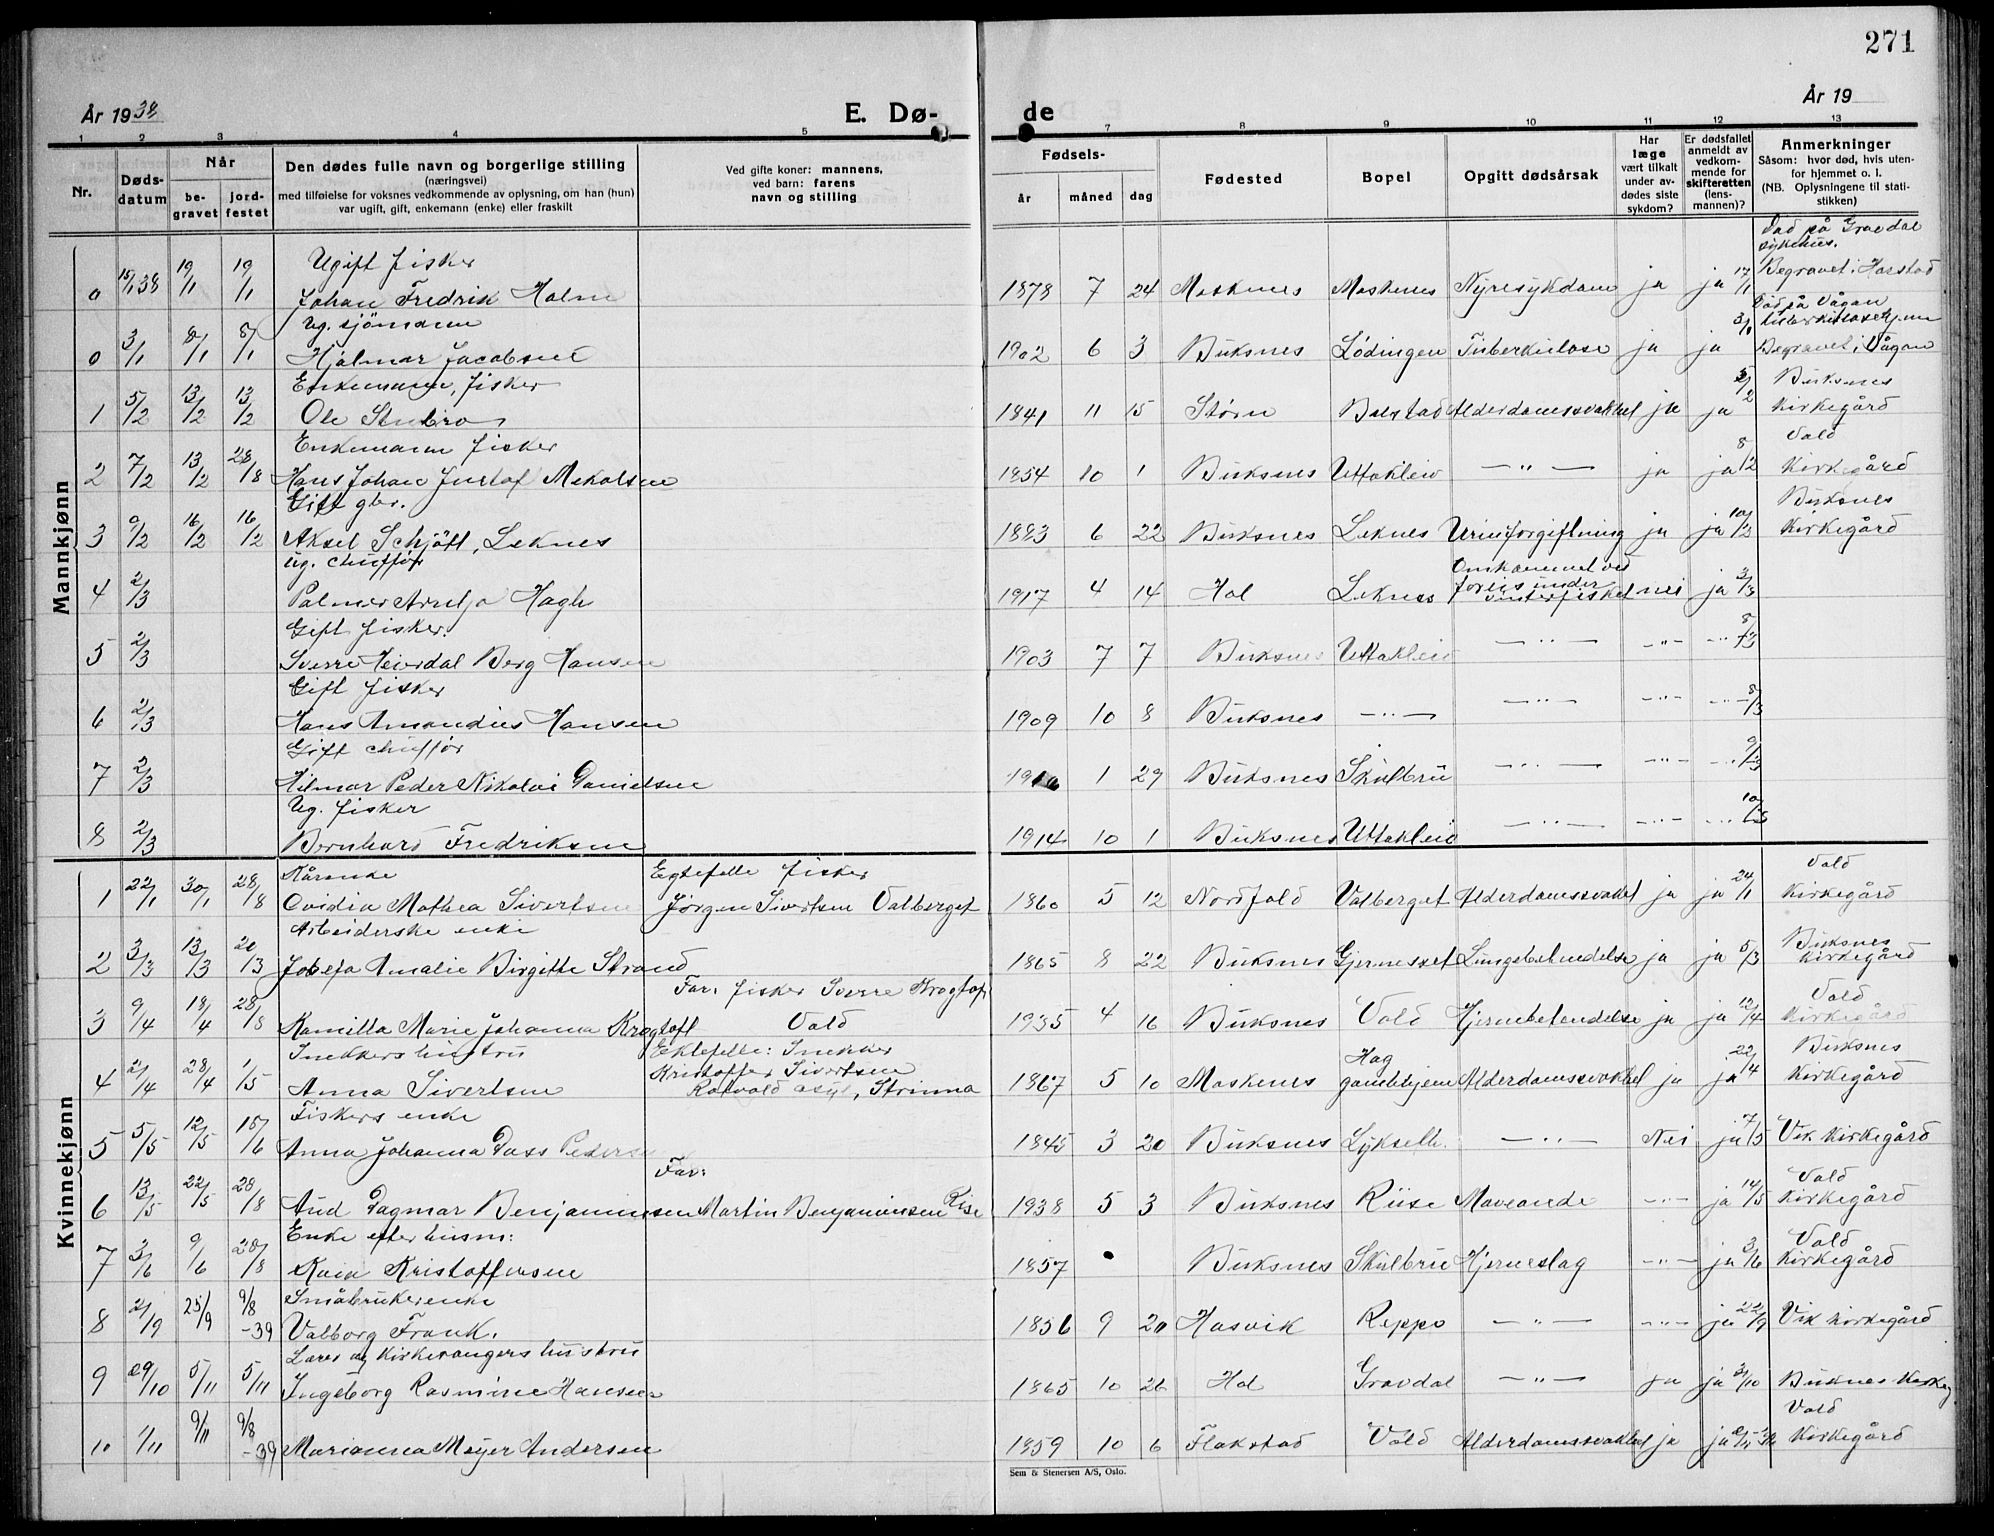 271
År 1938 E. Dø- de År 19
1 2 3 4 5 7 8 9 10 11 12 13
Nr. Døds-datum Når be-gravet jord-festet Den dødes fulle navn og borgerlige stilling (næringsvei) med tilføielse for voksnes vedkommende av oplysning, om han (hun) var ugift, gift, enkemann (enke) eller fraskilt Ved gifte koner: mannens, ved barn: farens navn og stilling Fødsels- år måned dag Fødested Bopel Opgitt dødsårsak Har læge vært tilkalt under av-dødes siste sykdom? Er dødsfallet anmeldt av vedkom-mende for skifteretten (lens-mannen)? Anmerkninger Såsom: hvor død, hvis uten-for hjemmet o. l. (NB. Oplysningene til stati-stikken)
Mannkjønn
Ugift fisker Død på Gravdal sykehus.
0 15/1 38 19/1 19/1 Johan Fredrik Holm 1878 7 24 Moskenes Moskenes Nyresykdom ja ja 17/1 Begravet i Harstad
Ug. sjömann Död på Vågan tuberkulosehjem
0 3/1 8/1 8/1 Hjalmar Jacobsen 1902 6 3 Buksnes Lödingen Tuberkulose ja ja 3/1 Begravet i Vågan
Enkemann, fisker Buksnes
1 5/2 13/2 13/2 Ole Stubro 1841 11 15 Stören Balstad Alderdomssvakhet ja ja 5/2 Kirkegård
Enkemann fisker Vold
2 7/2 13/2 28/8 Hans Johan Gustaf Mekalsen 1854 10 1 Buksnes Uttakleiv —"— ja ja 8/2 Kirkegård
Gift gbr. Buksnes
3 9/2 16/2 16/2 Aksel Schjött, Leknes 1883 6 22 Buksnes Leknes Urinforgiftning ja ja 10/2 Kirkegård
ug. chufför Omkommet ved forlis under
4 2/3 Palmer Hagh 1917 4 14 Hol Leknes vinterfisket nei ja 3/3
Gift fisker.
5 2/3 Sverre Heierdal Berg Hansen 1903 7 7 Buksnes Uttakleiv —"— —"— —"— 8/3
Gift fisker
6 2/3 Hans Amandius Hansen 1909 10 8 Buksnes —"— —"— —"— —"— 8/3
Gift chufför
7 2/3 Hilmar Peder Nikolai Danielsen 1 29 Buksnes Skulbru —"— —"— —"— 9/3
Ug. fisker
8 2/3 Bernhard Fredriksen 1914 10 1 Buksnes Uttakleiv —"— —"— —"— 10/3
Kvinnekjønn
Kårenke Egtefelle fisker Vold
1 22/1 30/1 28/8 Ovidia Mathea Sivertsen Jörgen Sivertsen Valberget 1860 5 12 Nordfold Valberget Alderdomssvakhet ja ja 24/1 Kirkegård
Arbeiderske enke Buksnes
2 3/3 13/3 20/3 Josefa Amalie Birgitte Strand 1865 8 22 Buksnes Gjernesset Lungebetendelse ja ja 5/3 Kirkegård
Far: fisker Sverre Krogtoft Vold
3 9/4 18/4 28/8 Kamilla Marie Johanna Krogtoft Vold 1935 4 16 Buksnes Vold Hjernebetendelse ja ja 12/4 Kirkegård
Snekkers hustru Ektefelle: Snekker Kristoffer Sivertsen Hag Buksnes
4 21/4 28/4 1/5 Anna Sivertsen Rolvold asyl, Strinna 1867 5 10 Moskenes gamlehjem Alderdomssvakhet ja ja 22/4 Kirkegård
Fiskers enke
5 5/5 12/5 15/6 Anna Johanna Dass Pedersen 1845 3 20 Buksnes Lykselh. —"— Nei ja 7/5 Vik Kirkegård
Far: Vold
6 13/5 22/5 28/8 Aud Dagmar Benjaminsen Martin Benjaminsen Rise 1938 5 3 Buksnes Riise Maveonde —"— ja 14/5 Kirkegård
Enke efter husm: Vold
7 3/6 9/6 28/8 Kaia Kristoffersen 1857 Buksnes Skulbru Hjerneslag —"— ja 3/6 Kirkegård
Småbrukerenke
8 21/9 25/9 9/8 -39 Valborg Frank. 1856 9 20 Hasvik Reppe —"— —"— ja 22/9 Vik Kirkegård
Lærer og Kirkesangers hustru
9 29/10 5/11 5/11 Ingeborg Rasmine Hansen 1865 10 26 Hol Gravdal —"— ja ja 31/10 Buksnes Kirkeg
Vold
10 1/11 9/11 9/8 -39 Marianna Meyer Andersen 1859 10 6 Flakstad Vold Alderdomssvakhet ja ja Kirkegård
Sem & Stenersen A/S, Oslo.